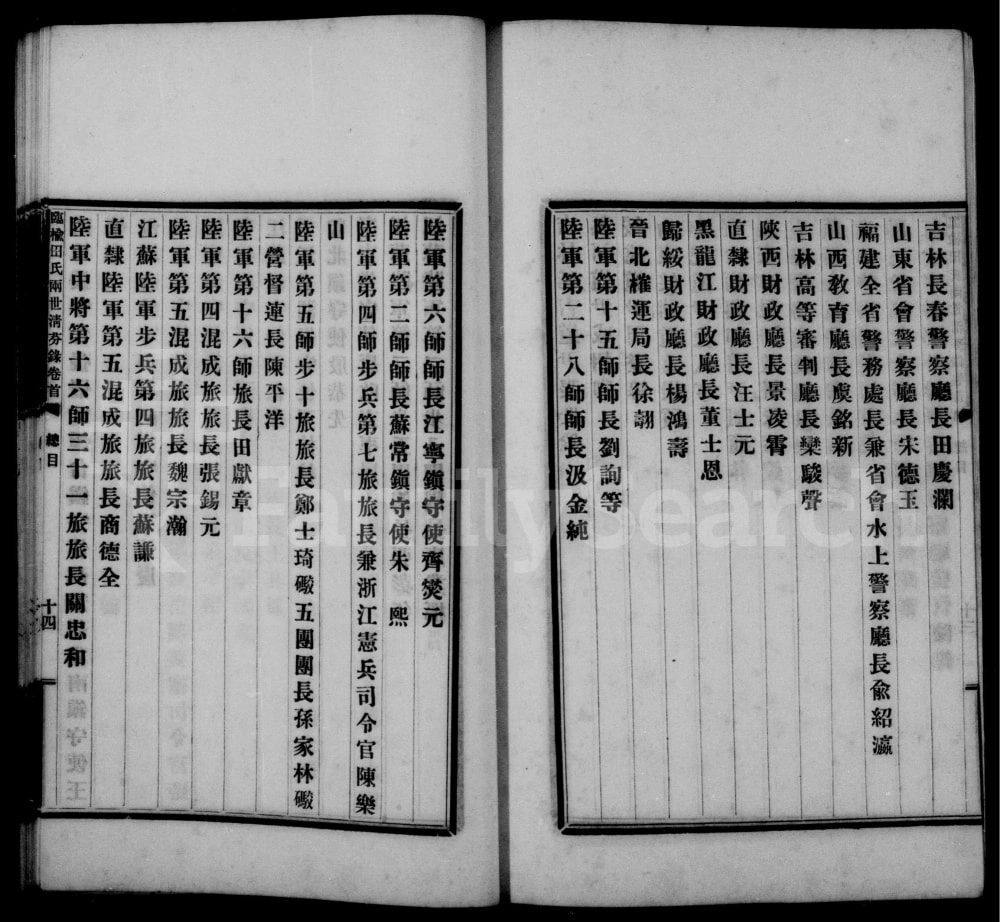 吉林長春警察廳長田慶瀾
山東省會警察廳長宋德玉
福建全省警務處長兼省會水上警察廳長俞紹瀛
山西教育廳長虞銘新
吉林高等審判廳長欒駿聲
陝西財政廳長景凌霄
直隸財政廳長汪士元
黑龍江財政廳長董士恩
歸綏財政廳長楊鴻壽
晉北榷運局長徐翿
陸軍第十五師師長劉詢等
陸軍第二十八師師長汲金純
陸軍第六師師長江寧鎮守使齊燮元
陸軍第二師師長蘇常鎮守使朱熙
陸軍第四師步兵第七旅旅長兼浙江憲兵司令官陳樂
山
陸軍第五師步十旅旅長鄭士琦礮五團團長孫家林礮
二營督連長陳平洋
陸軍第十六師旅長田獻章
陸軍第四混成旅旅長張錫元
陸軍第五混成旅旅長魏宗瀚
江蘇陸軍步兵第四旅旅長蘇謙
直隸陸軍第五混成旅旅長商德全
陸軍中將第十六師三十一旅旅長關忠和
臨榆田氏兩世清芬錄卷首 總目 十四
FamilySearch